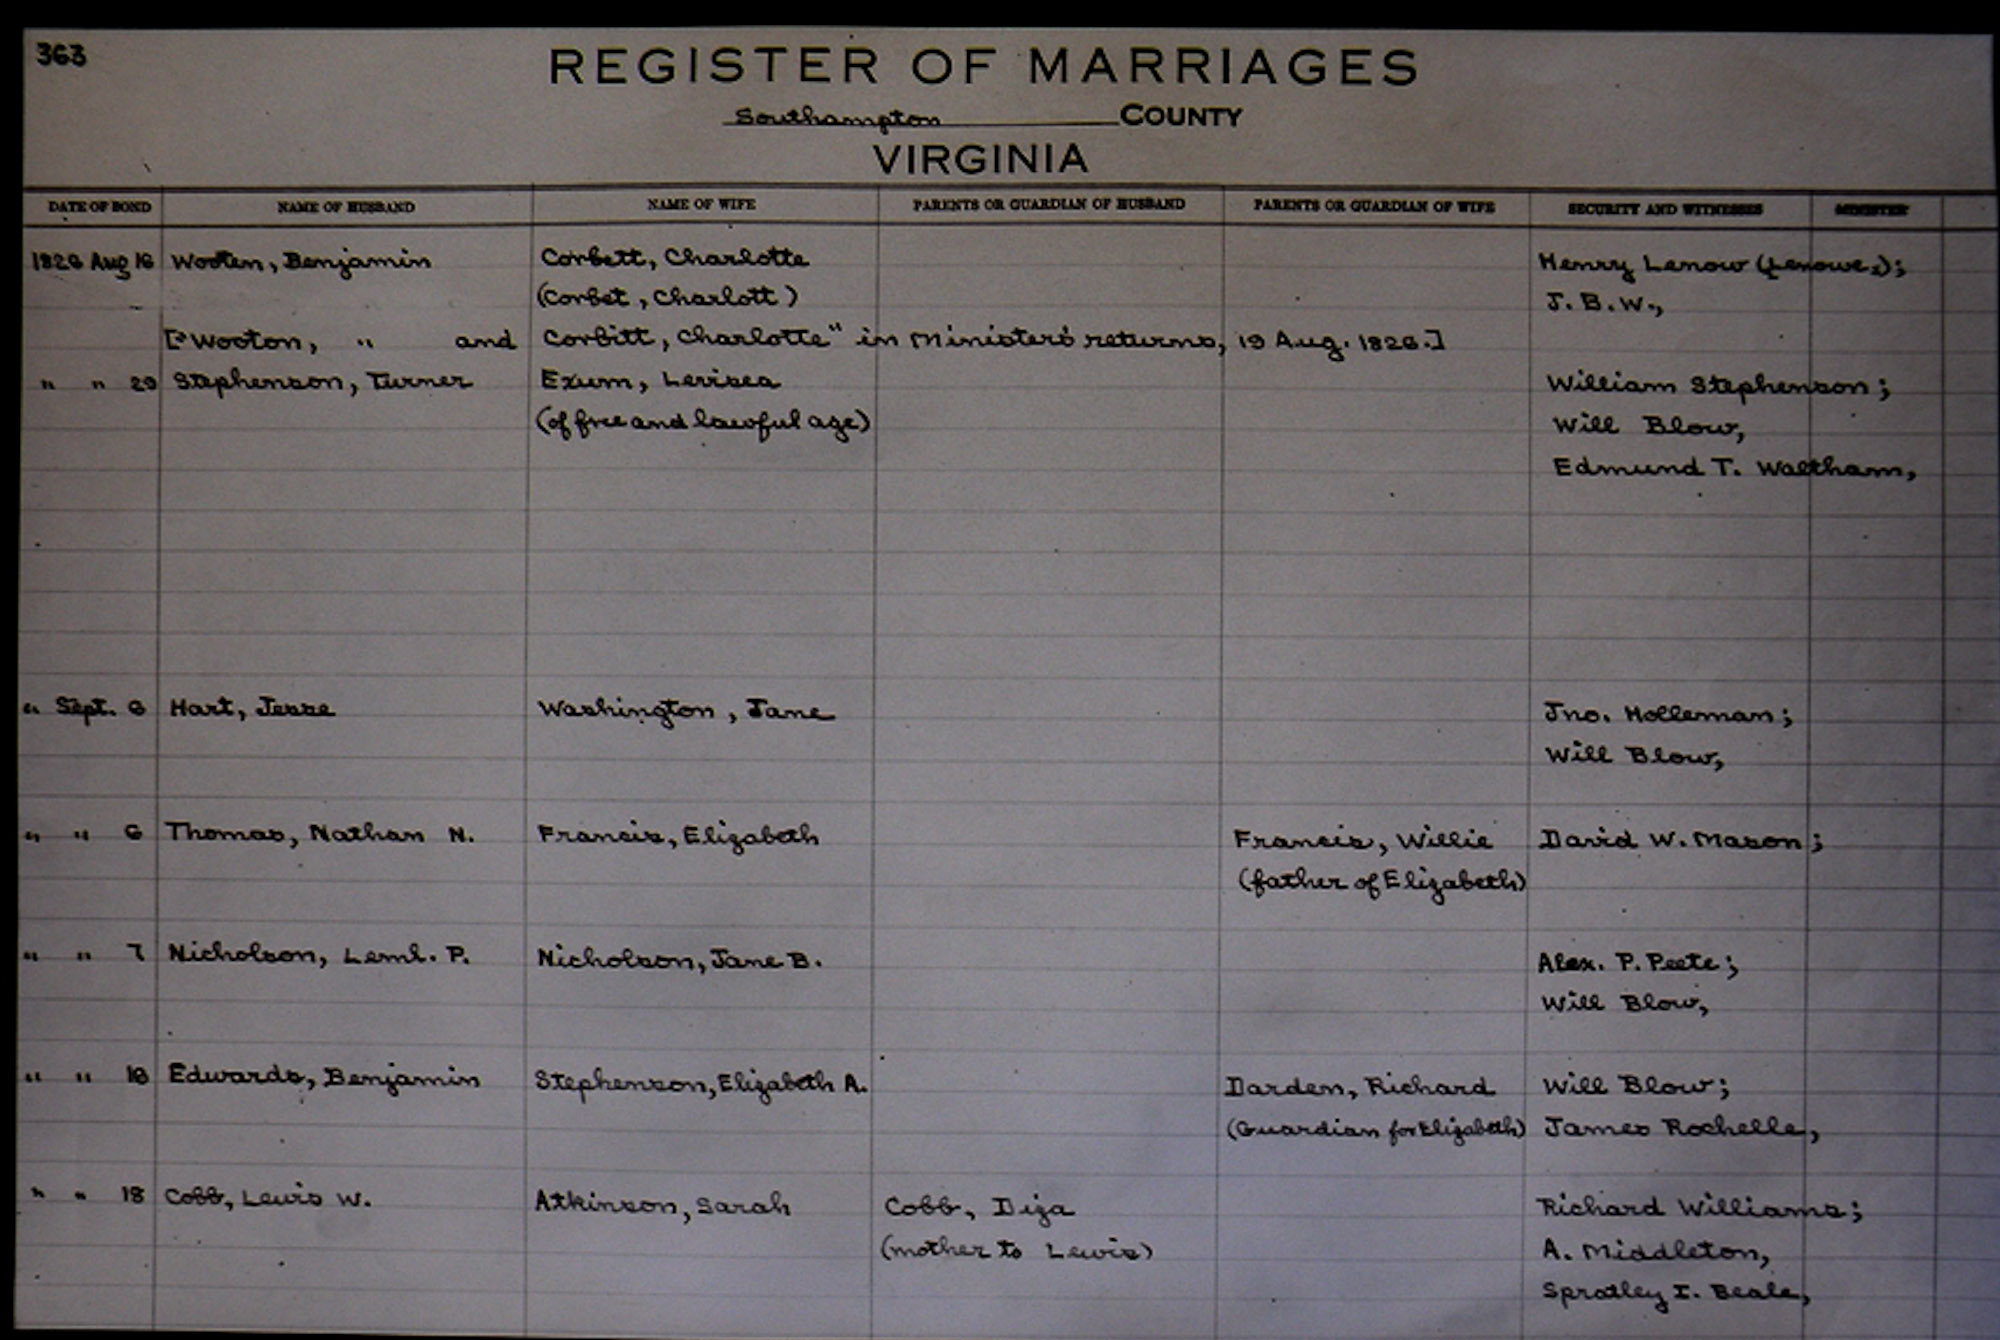 363
REGISTER OF MARRIAGES
Southampton COUNTY
VIRGINIA
DATE OF BOND NAME OF HUSBAND NAME OF WIFE PARENTS OR GUARDIAN OF HUSBAND PARENTS OR GUARDIAN OF WIFE SECURITY AND WITNESSES MINISTER
1826 Aug 16 Wooten, Benjamin Corbett, Charlotte Henry Lenow (Lenowe);
(Corbet, Charlott) J. B. W.,
["Wooton, " and Corbitt, Charlotte" in Minister's returns, 19 Aug. 1826.]
" " 29 Stephenson, Turner Exum, Levisea William Stephenson;
(of free and lawful age) Will Blow,
Edmund T. Waltham,
" Sept. 6 Hart, Jesse Washington, Jane Jno. Holleman;
Will Blow,
" " 6 Thomas, Nathan N. Francis, Elizabeth Francis, Willie David W. Mason;
(father of Elizabeth)
" " 7 Nicholson, Leml. P. Nicholson, Jane B. Alex. P. Peete;
Will Blow,
" " 18 Edwards, Benjamin Stephenson, Elizabeth A. Darden, Richard Will Blow;
(Guardian for Elizabeth) James Rochelle,
" " 18 Cobb, Lewis W. Atkinson, Sarah Cobb, Diza Richard Williams;
(mother to Lewis) A. Middleton,
Spratley I. Beale,